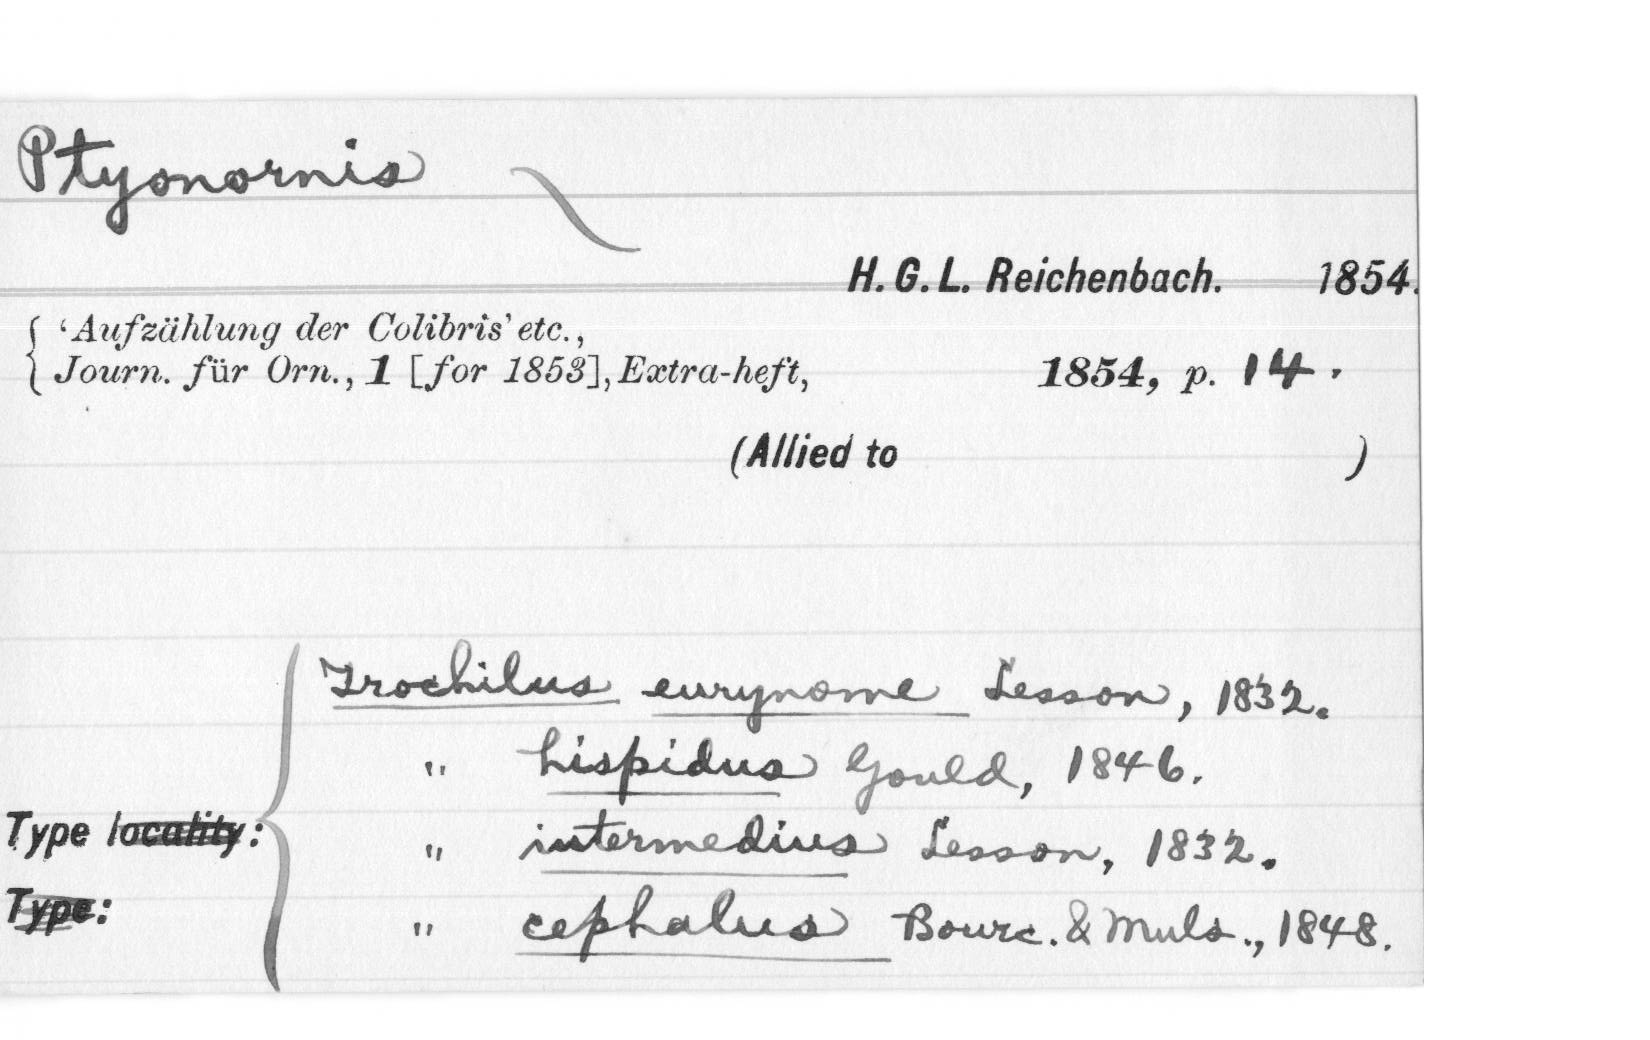 Ptyonornis
H. G. L. Reichenbach. 1854.
‘Aufzählung der Colibris’ etc.,
Journ. für Orn., 1 [for 1853], Extra-heft, 1854, p. 14.
(Allied to )
Trochilus eurynome Lesson, 1832.
" hispidus Gould, 1846.
Type locality:
" intermedius Lesson, 1832.
Type:
" cephalus Bourc. & Muls., 1848.